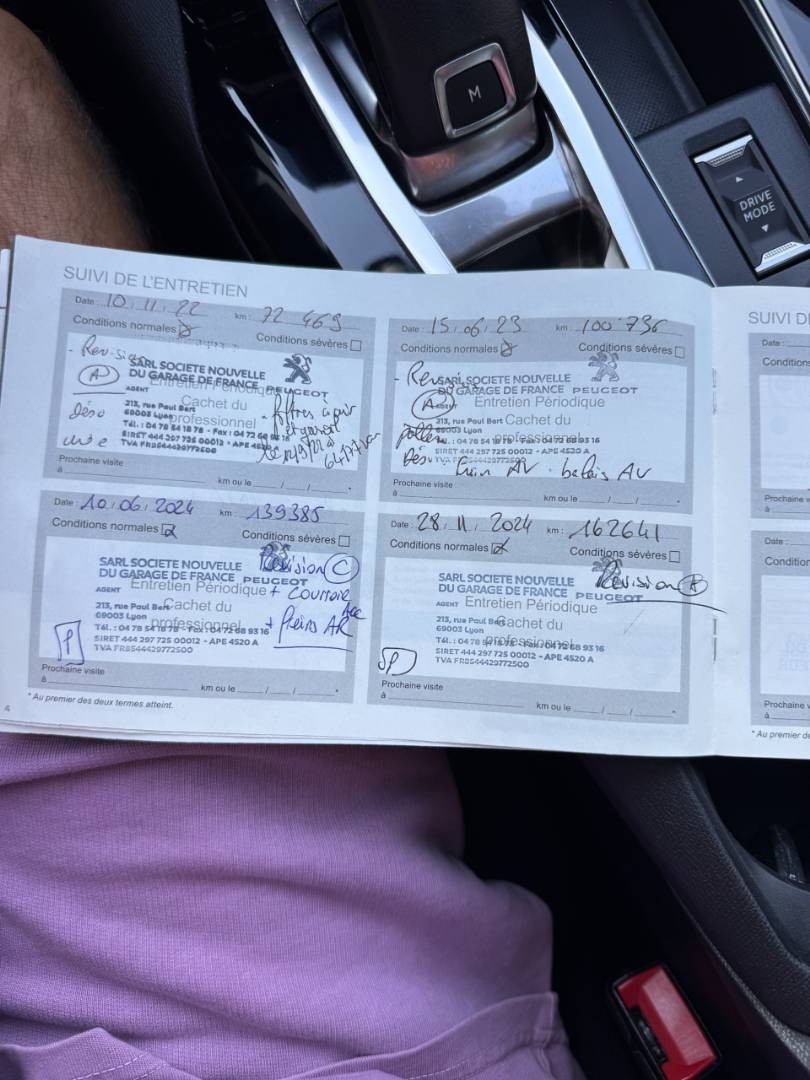 M
DRIVE
MODE
SUIVI DE L'ENTRETIEN
Date : 10.11.22 km : 72 469
Conditions normales
Conditions sévères
- Revision
A
SARL SOCIETE NOUVELLE
DU GARAGE DE FRANCE PEUGEOT
AGENT Entretien Périodique
213, rue Paul Bert Cachet du
69003 Lyon professionnel
Tél. : 04 78 54 18 78 - Fax : 04 72 68 93 16
SIRET 444 297 725 00012 - APE 4520 A
TVA FR85444297725 00
- filtres à air
et gasoil
Prochaine visite
à km ou le / / *
Date : 15.06.23 km : 100 736
Conditions normales
Conditions sévères
- Revision
A
SARL SOCIETE NOUVELLE
DU GARAGE DE FRANCE PEUGEOT
Entretien Périodique
213, rue Paul Bert Cachet du
69003 Lyon professionnel
Tél. : 04 78 54 18 78 - Fax : 04 72 68 93 16
SIRET 444 297 725 00012 - APE 4520 A
pollen
frein AV. balais AV
Prochaine visite
à km ou le / / *
Date : 10.06.2024 km : 139385
Conditions normales
Conditions sévères
Revision C
SARL SOCIETE NOUVELLE
DU GARAGE DE FRANCE PEUGEOT
AGENT Entretien Périodique + courroie Acc
213, rue Paul Bert Cachet du
69003 Lyon professionnel
+ freins AR
Tél. : 04 78 54 18 78 - Fax : 04 72 68 93 16
SIRET 444 297 725 00012 - APE 4520 A
TVA FR85444429772500
Prochaine visite
à km ou le / / *
Date : 28.11.2024 km : 162641
Conditions normales
Conditions sévères
Revision
SARL SOCIETE NOUVELLE
DU GARAGE DE FRANCE PEUGEOT
AGENT Entretien Périodique
213, rue Paul Bert Cachet du
69003 Lyon professionnel
Tél. : 04 78 54 18 78 - Fax : 04 72 68 93 16
SIRET 444 297 725 00012 - APE 4520 A
TVA FR85444429772500
Prochaine visite
à km ou le / / *
* Au premier des deux termes atteint.
4
SUIVI D
Date :
Conditions
Prochaine v
à
Date :
Condition
Prochaine v
à
* Au premier de